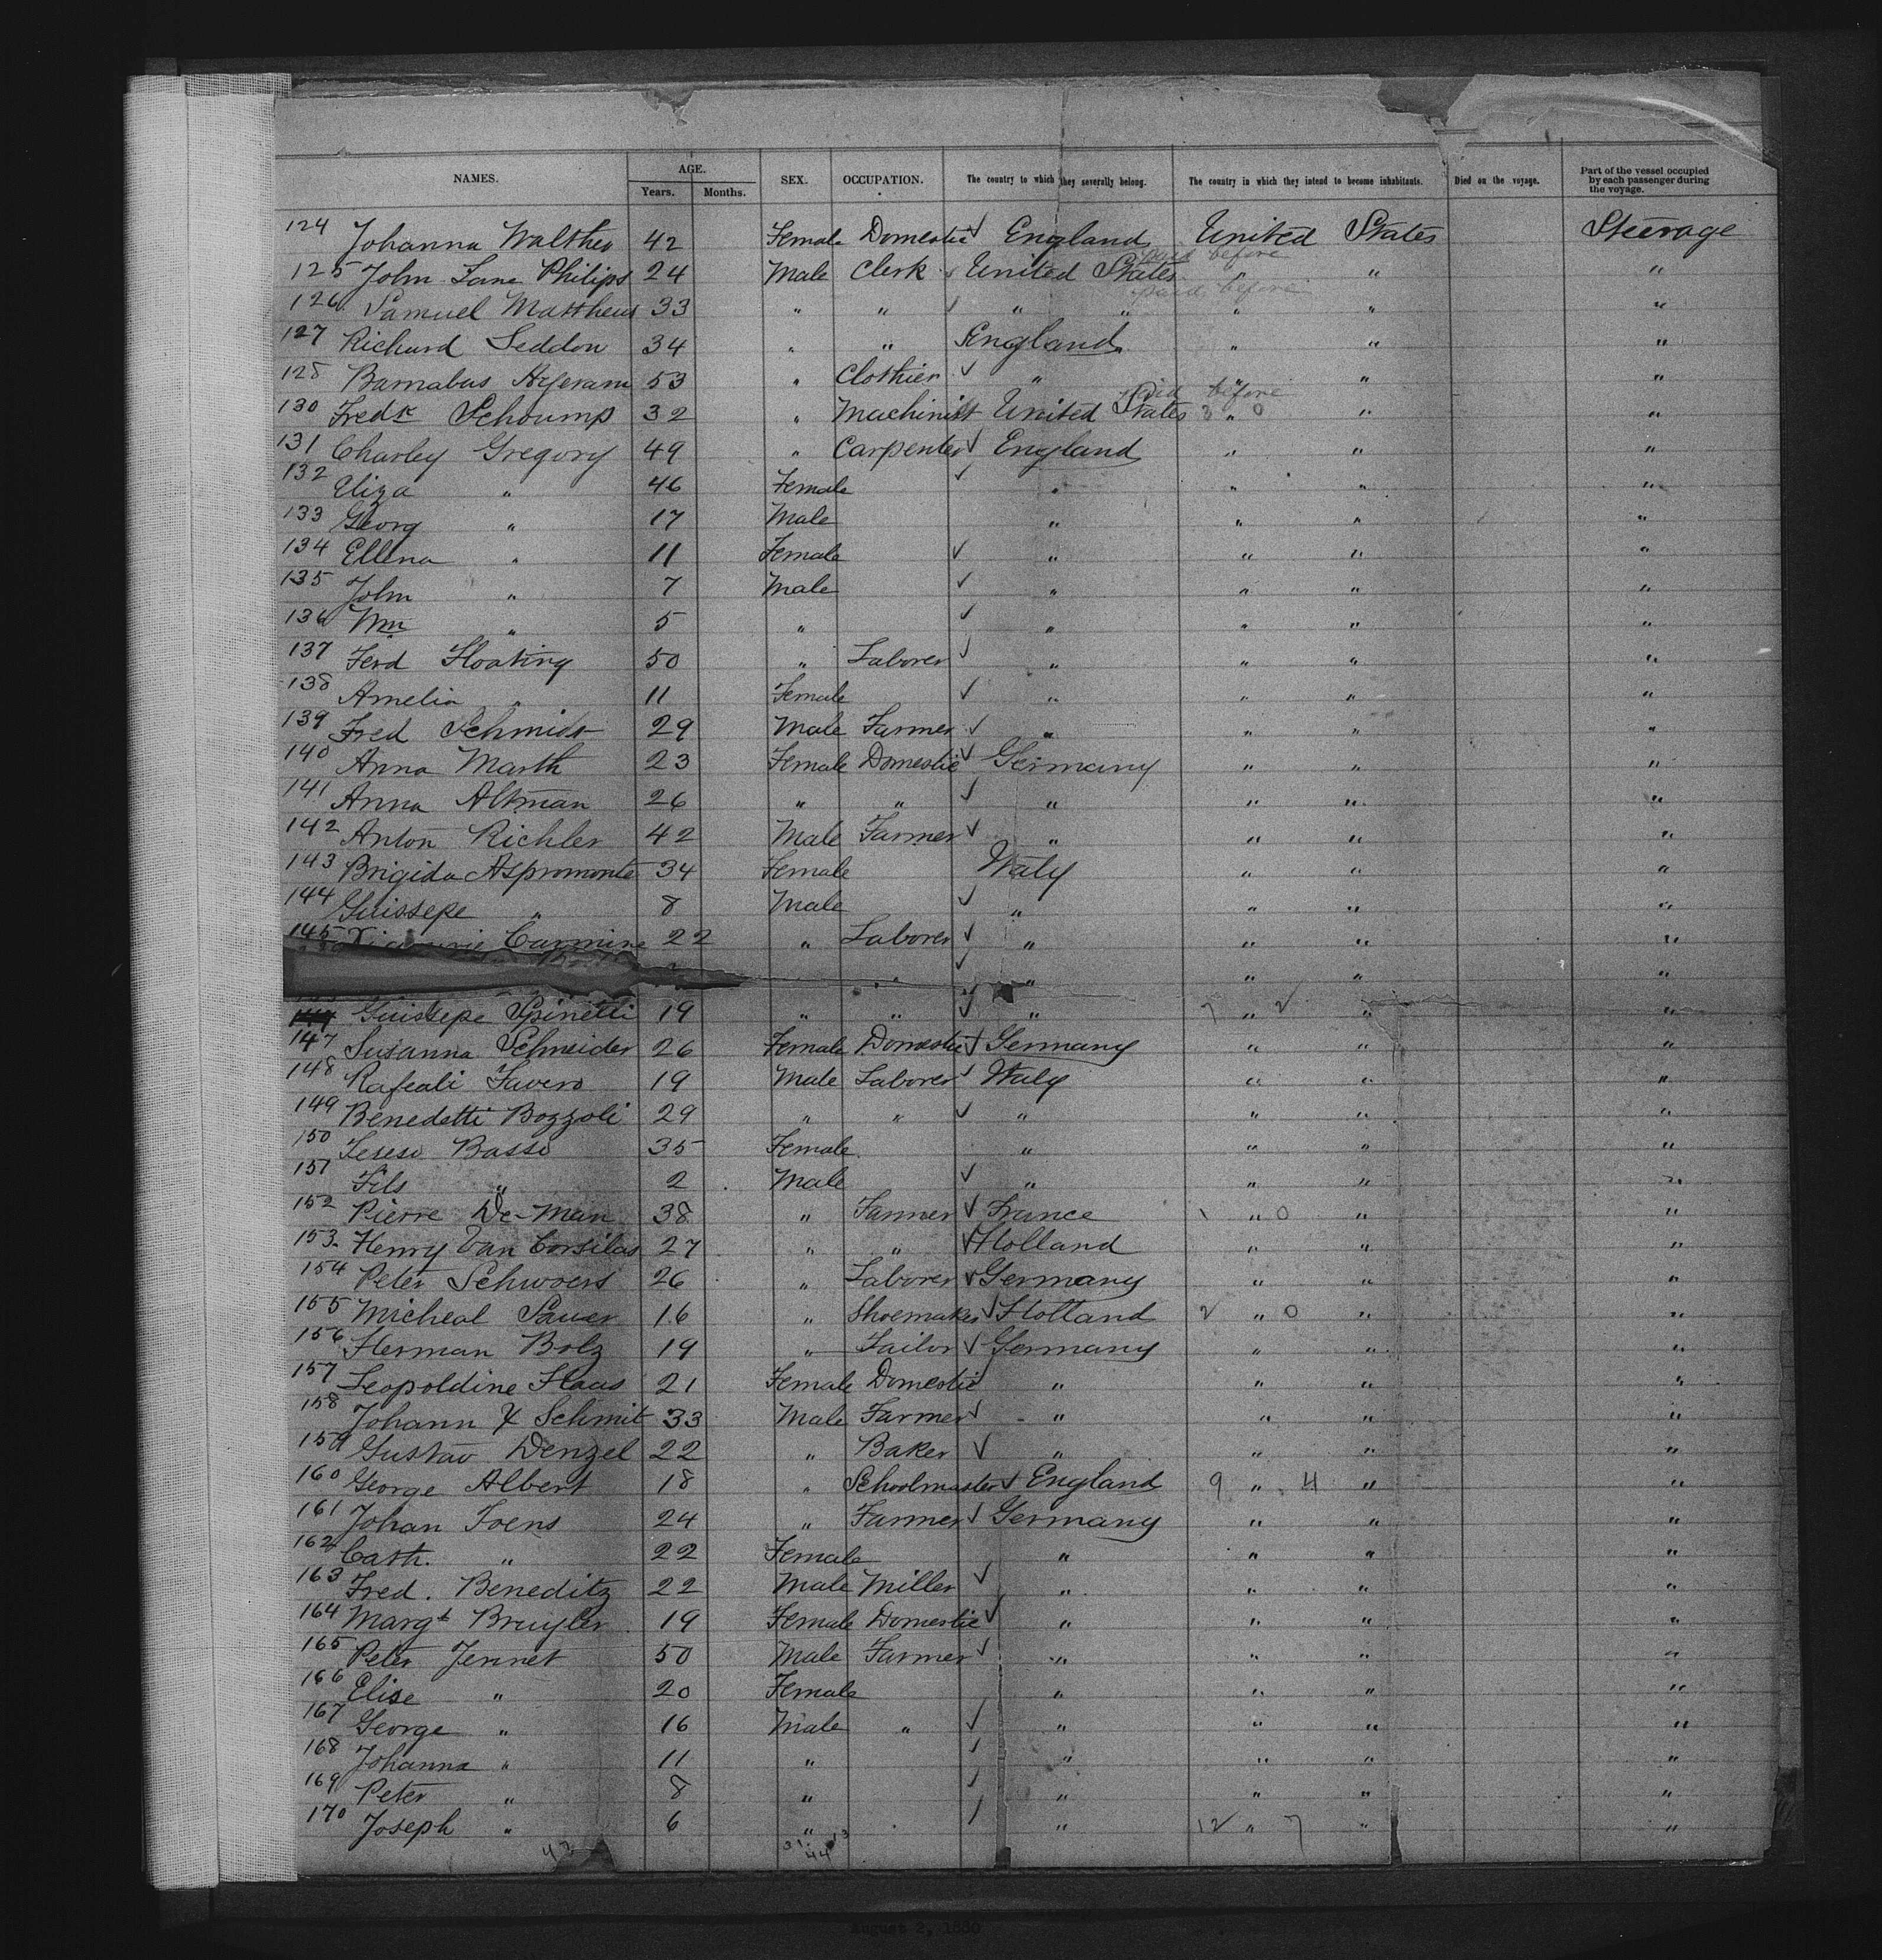 NAMES. AGE. Years. Months. SEX. OCCUPATION. The country to which they severally belong. The country in which they intend to become inhabitants. Died on the voyage. Part of the vessel occupied by each passenger during the voyage.
124 Johanna Walther 42 Female Domestic ✓ England United States Steerage
paid before
125 John Lane Philips 24 Male Clerk ✓ United States " " "
paid before
126 Samuel Matthews 33 " " ✓ " " " " "
127 Richard Seddon 34 " " England " " "
128 Barnabus 53 " Clothier ✓ " " " "
paid before
130 Fredk Schoump 32 " Machinist United States 3 " 0 " "
131 Charley Gregory 49 " Carpenter ✓ England " " "
132 Eliza " 46 Female ✓ " " " "
133 Georg " 17 Male " " " "
134 Ellena " 11 Female ✓ " " " "
135 John " 7 Male ✓ " " " "
136 Wm " 5 " ✓ " " " "
137 Ferd Floating 50 " Laborer ✓ " " " "
138 Amelia " 11 Female ✓ " " " "
139 Fred Schmidt 29 Male Farmer ✓ " " " "
140 Anna Marth 23 Female Domestic ✓ Germany " " "
141 Anna Altman 26 " " ✓ " " " "
142 Anton Richler 42 Male Farmer ✓ " " " "
143 Brigida Aspromonte 34 Female Italy " " "
144 Guissepe " 8 Male ✓ " " " "
145 Carmine 22 " Laborer ✓ " " " "
" ✓ " " " "
Guissepe Spinetti 19 " " ✓ " 7 " 2 " "
147 Susanna Schneider 26 Female Domestic ✓ Germany " " "
148 Rafeali Favero 19 Male Laborer ✓ Italy " " "
149 Benedetti Bozzoli 29 " " ✓ " " " "
150 Basso 35 Female " " " "
151 Fils " 2 Male ✓ " " " "
152 Pierre De-Man 38 " Farmer ✓ France 1 " 0 " "
153 Henry Van Corsilas 27 " " ✓ Holland " " "
154 Peter Schwoers 26 " Laborer ✓ Germany " " "
155 Micheal Sauer 16 " Shoemaker ✓ Holland 2 " 0 " "
156 Herman Bolz 19 " Tailor ✓ Germany " " "
157 Leopoldine Haas 21 Female Domestic " " " "
158 Johann Schmit 33 Male Farmer ✓ " " " "
159 Gustav Denzel 22 " Baker ✓ " " " "
160 George Albert 18 " Schoolmaster ✓ England 9 " 4 " "
161 Johan Joens 24 " Farmer ✓ Germany " " "
162 Cath. " 22 Female " " " "
163 Fred. Beneditz 22 Male Miller ✓ " " " "
164 Margt Bruyler 19 Female Domestic ✓ " " " "
165 Peter Jennet 50 Male Farmer ✓ " " " "
166 Elise " 20 Female " " " "
167 George " 16 Male " ✓ " " " "
168 Johanna " 11 " ✓ " " " "
169 Peter " 8 " ✓ " " " "
170 Joseph " 6 " ✓ " 12 " 7 " "
42 31 13
44
August 2, 1880